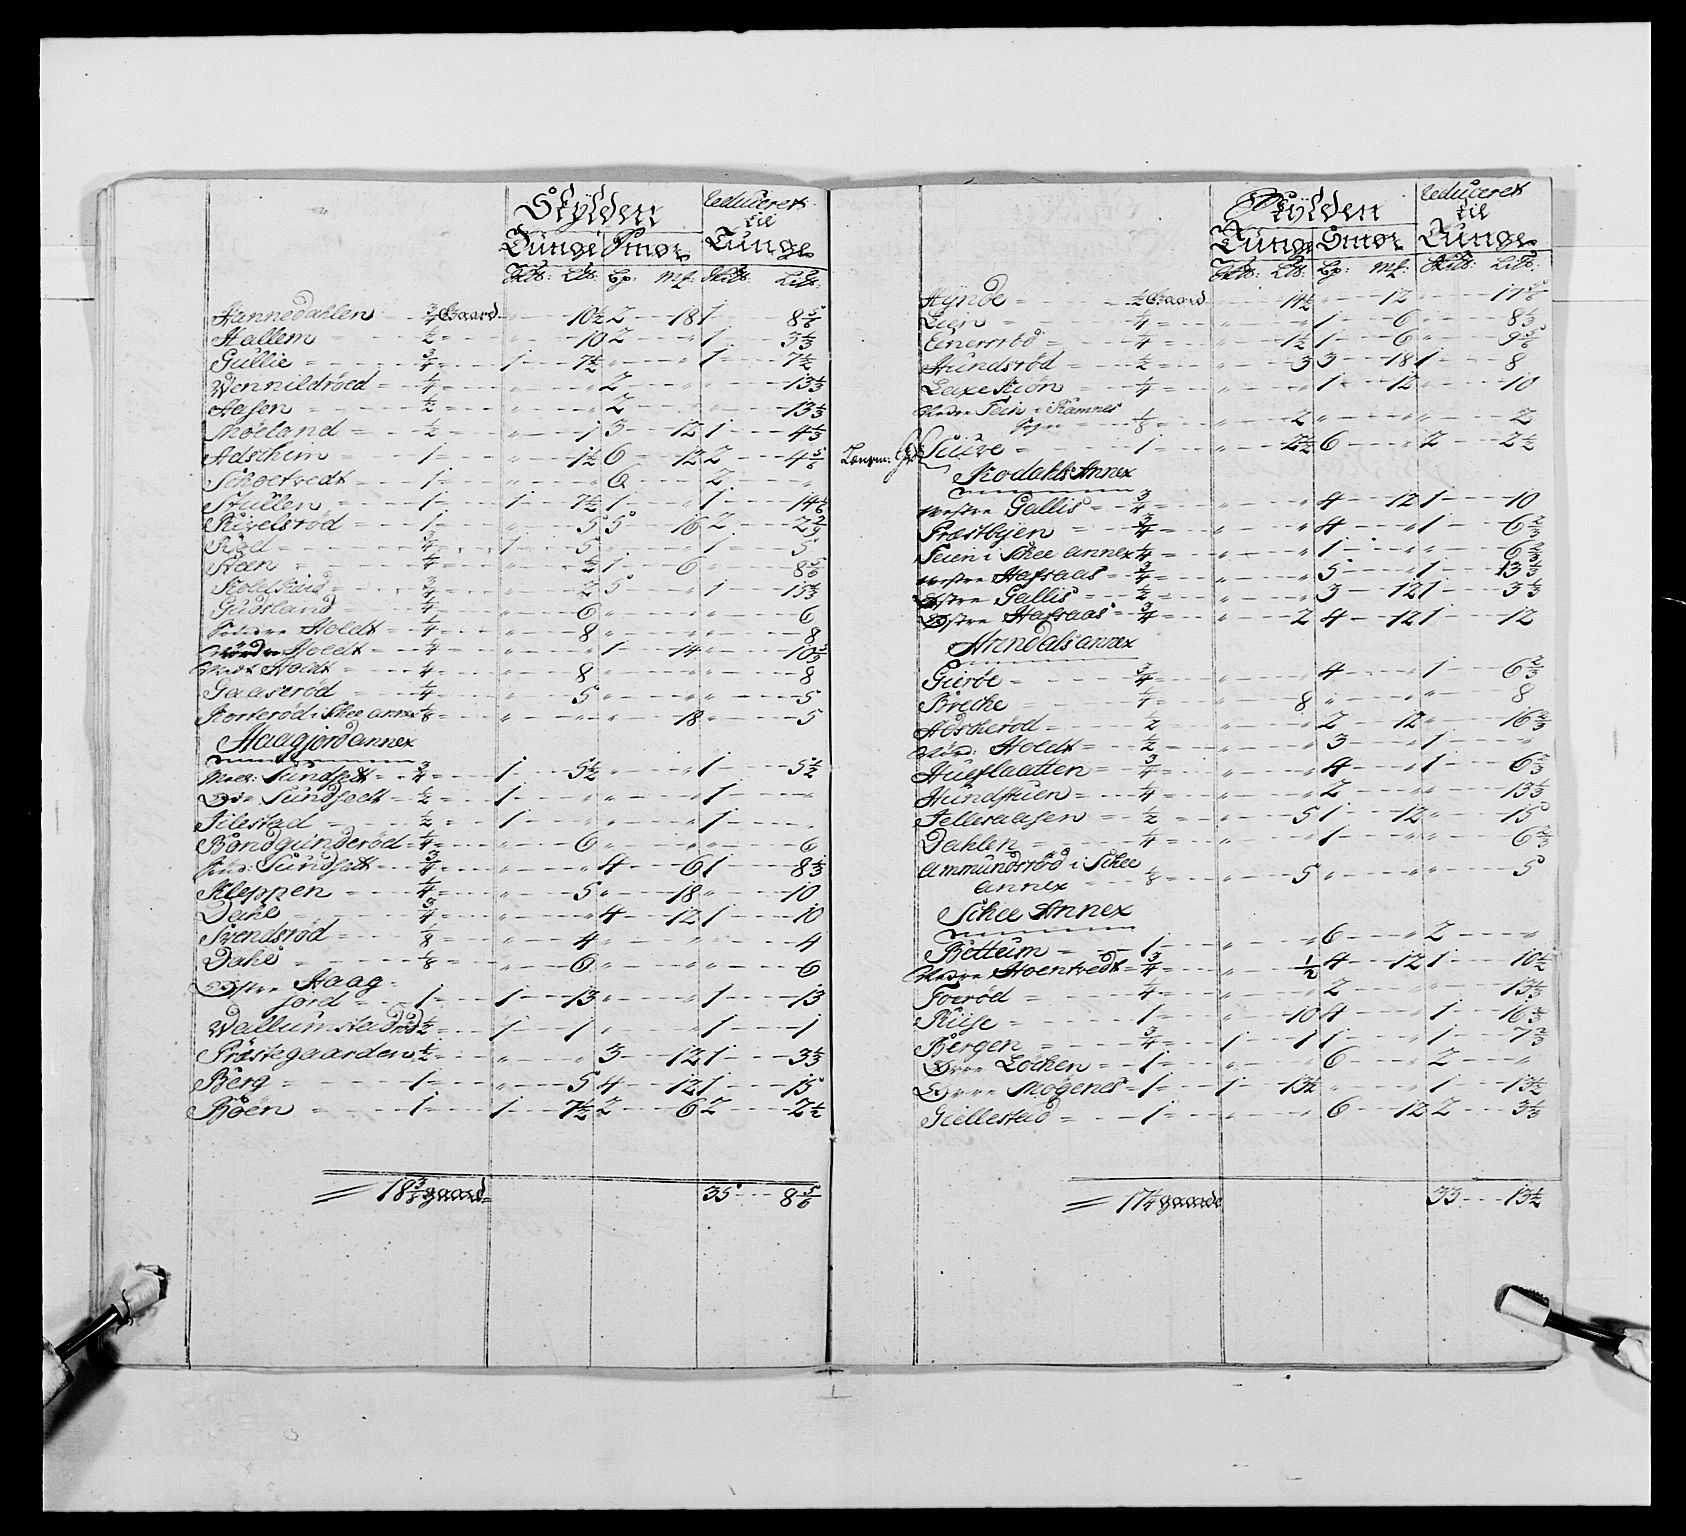 Skylden reduceret
til
Tunge Smør Tunge
Sk℔: L℔: Bp: Mk: Sk℔: Li℔:
Hannedahlen 3/4 Gaard " 10 1/2 2 18 1 8 5/6
Hallem 1/2 " 10 2 " 1 3 1/3
Gullie 3/4 1 7 1/2 " " 1 7 1/2
Wennildröed 1/4 " " 2 " " 13 1/3
Aasen 1/2 " " 2 " " 13 1/3
Möeland 1/2 " 1 3 12 1 4 1/3
Adsthem 1 " 1 1/2 6 12 2 4 5/6
Schoetvedt 1 " " 6 " 2 "
Stullen 1 1 7 1/2 1 " 1 14 1/6
Rivelsröd 1 " 5 5 16 2 2 2/9
Röel 3/4 1 5 " " 1 5
Steen 1/4 " 1/2 1 6 " 8 5/6
Kolelstad 3/4 " 2 5 " 1 15 1/3
Gudsland 1/4 " 6 " " " 6
Söndre Holdt 1/4 " 8 " " " 8
Nordre Holdt 1/4 " " 1 14 " 10 5/9
Holdt 1/4 " 8 " " " 8
Gaaseröd 1/4 " 5 " " " 5
Korteröd i Schee annex 1/8 " " " 18 " 5
Haagjord annex
Mel: Sundsedt 3/4 1 5 1/2 " " 1 5 1/2
Sundsedt 1/2 1 " " " 1 "
Jilestad 1/2 1 " " " 1 "
Bondgunderöd 1/4 " 6 " " " 6
Sundsedt 3/4 " " 4 6 1 8 1/3
Kleppen 1/4 " 5 " 18 " 10
Dahl 3/4 " " 4 12 1 10
Svendsröd 1/8 " 4 " " " 4
Dahl 1/8 " 6 " " " 6
Østre Haag-
jord 1 1 13 " " 1 13
Wallumstad 1/2 1 1 " " 1 1
Præstegaarden 1/2 " " 3 12 1 3 1/3
Berg 1 " 5 4 12 1 15
Röen 1 1 7 1/2 2 6 2 2 1/2
18 3/8 gaard 35 8 5/6
Skylden reduceret
til
Tunge Smør Tunge
Sk℔: L℔: Bp: Mk: Sk℔: Li℔:
Hynde 1/2 Gaard " 14 1/2 " 12 " 17 5/6
Lien 1/4 " " 1 6 " 8 1/3
Enersröd 1/4 " 1 1/2 1 6 " 9 5/6
Aundsröd 1/2 " 3 3 18 1 8
Laxeskiön 1/4 " " 1 12 " 10
Nedre Fein i Ramnes
Sogn 1/8 " 2 " " " 2
Lænsm: Gd: Suve 1 " 2 1/2 6 " 2 2 1/2
Kodahls Annex
westre Gallis 3/4 " " 4 12 1 10
Præstbyen 3/4 " " 4 " 1 6 2/3
Feien i Schee annex 1/4 " " 1 " " 6 2/3
westre Hafsaas 3/4 " " 5 " 1 13 1/3
Østre Gallis 1/2 " " 3 12 1 3 1/3
Østre Hafsaas 3/4 " 2 4 12 1 12
Arndals annex
Gieröe 3/4 " " 4 " 1 6 2/3
Breche 1/4 " 8 " " " 8
Adstheröd 1/2 " " 2 12 " 16 2/3
Nör: Holdt 1/2 " " 3 " 1 "
Hueflaatten 3/4 " " 4 " 1 6 2/3
Hundstuen 1/4 " " 2 " " 13 1/3
Jelleraasen 1/2 " 5 1 12 " 15
Dahlen 1/4 " " 1 " " 6 2/3
Ammundsröd i Schee
annex 1/8 " 5 " " " 5
Schee Annex
Bettum 1 " " 6 " 2 "
Nedre Hoentvedt 3/4 " 1/2 4 12 1 10 1/2
Foeröd 1/4 " " 2 " " 13 1/3
Riise 1 " 10 4 " 1 16 2/3
Bergen 3/4 1 1 1 " 1 7 2/3
Øvre Löcken 1 " " 6 " 2 "
Øvre Mogenes 1 1 13 1/2 " " 1 13 1/2
Gullestad 1 " " 6 12 2 3 1/3
17 1/4 gaarde 33 13 1/2